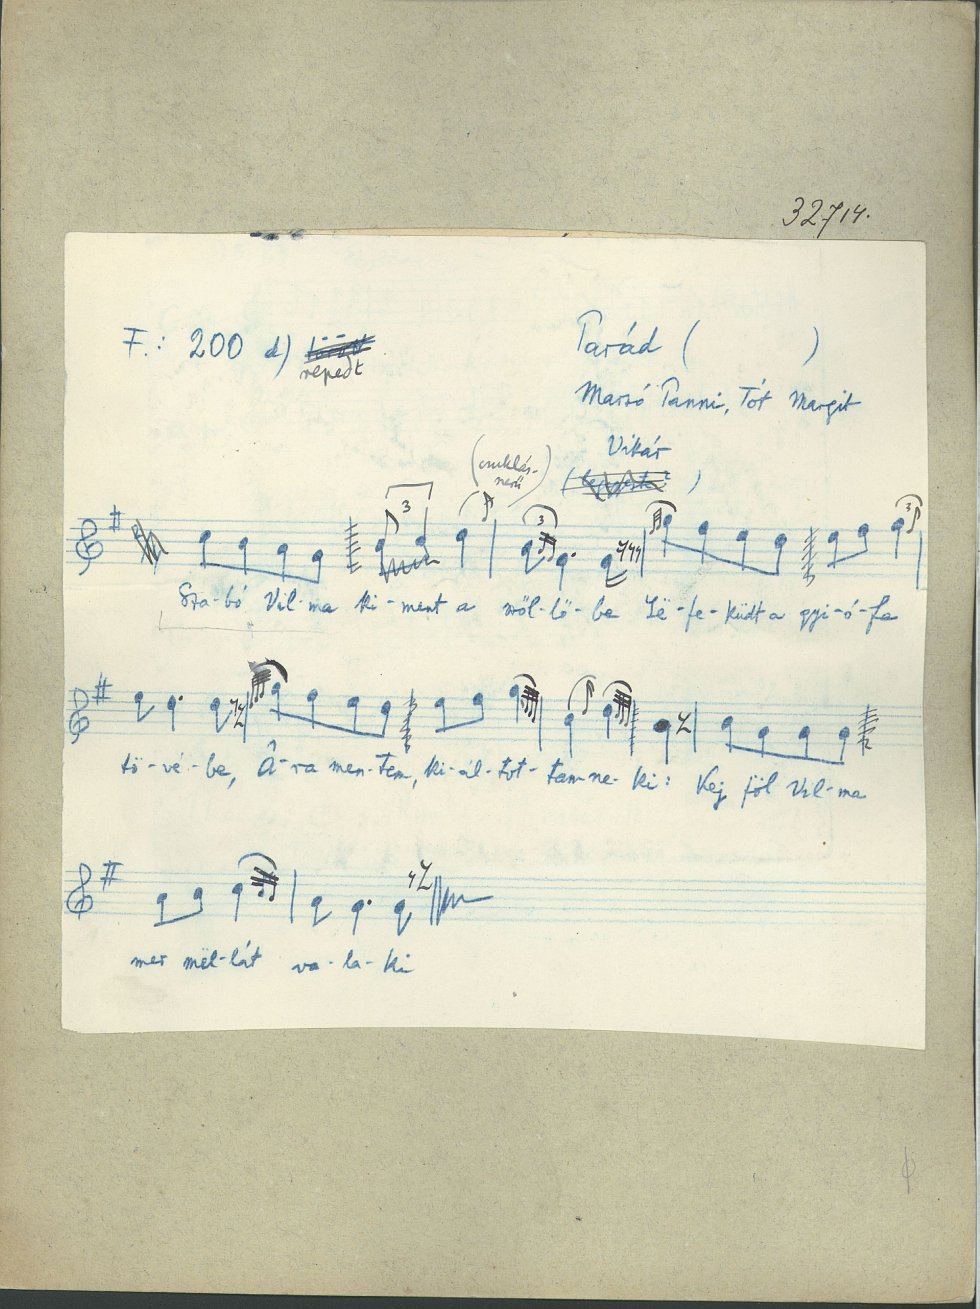 32714.
F.: 200 d) repedt
Parád ( )
Marsó Panni, Tót Margit
Vikár
(csuklás-
szerű)
3 3 3
Sza-bó Vil-ma ki-ment a szöl-lö-be Lë-fe-küdt a gyi-ó-fa
tö-vé-be, Â-ra men-tem, ki-ál-tot-tam ne-ki: Kej föl Vil-ma
mer mël-lát va-la-ki